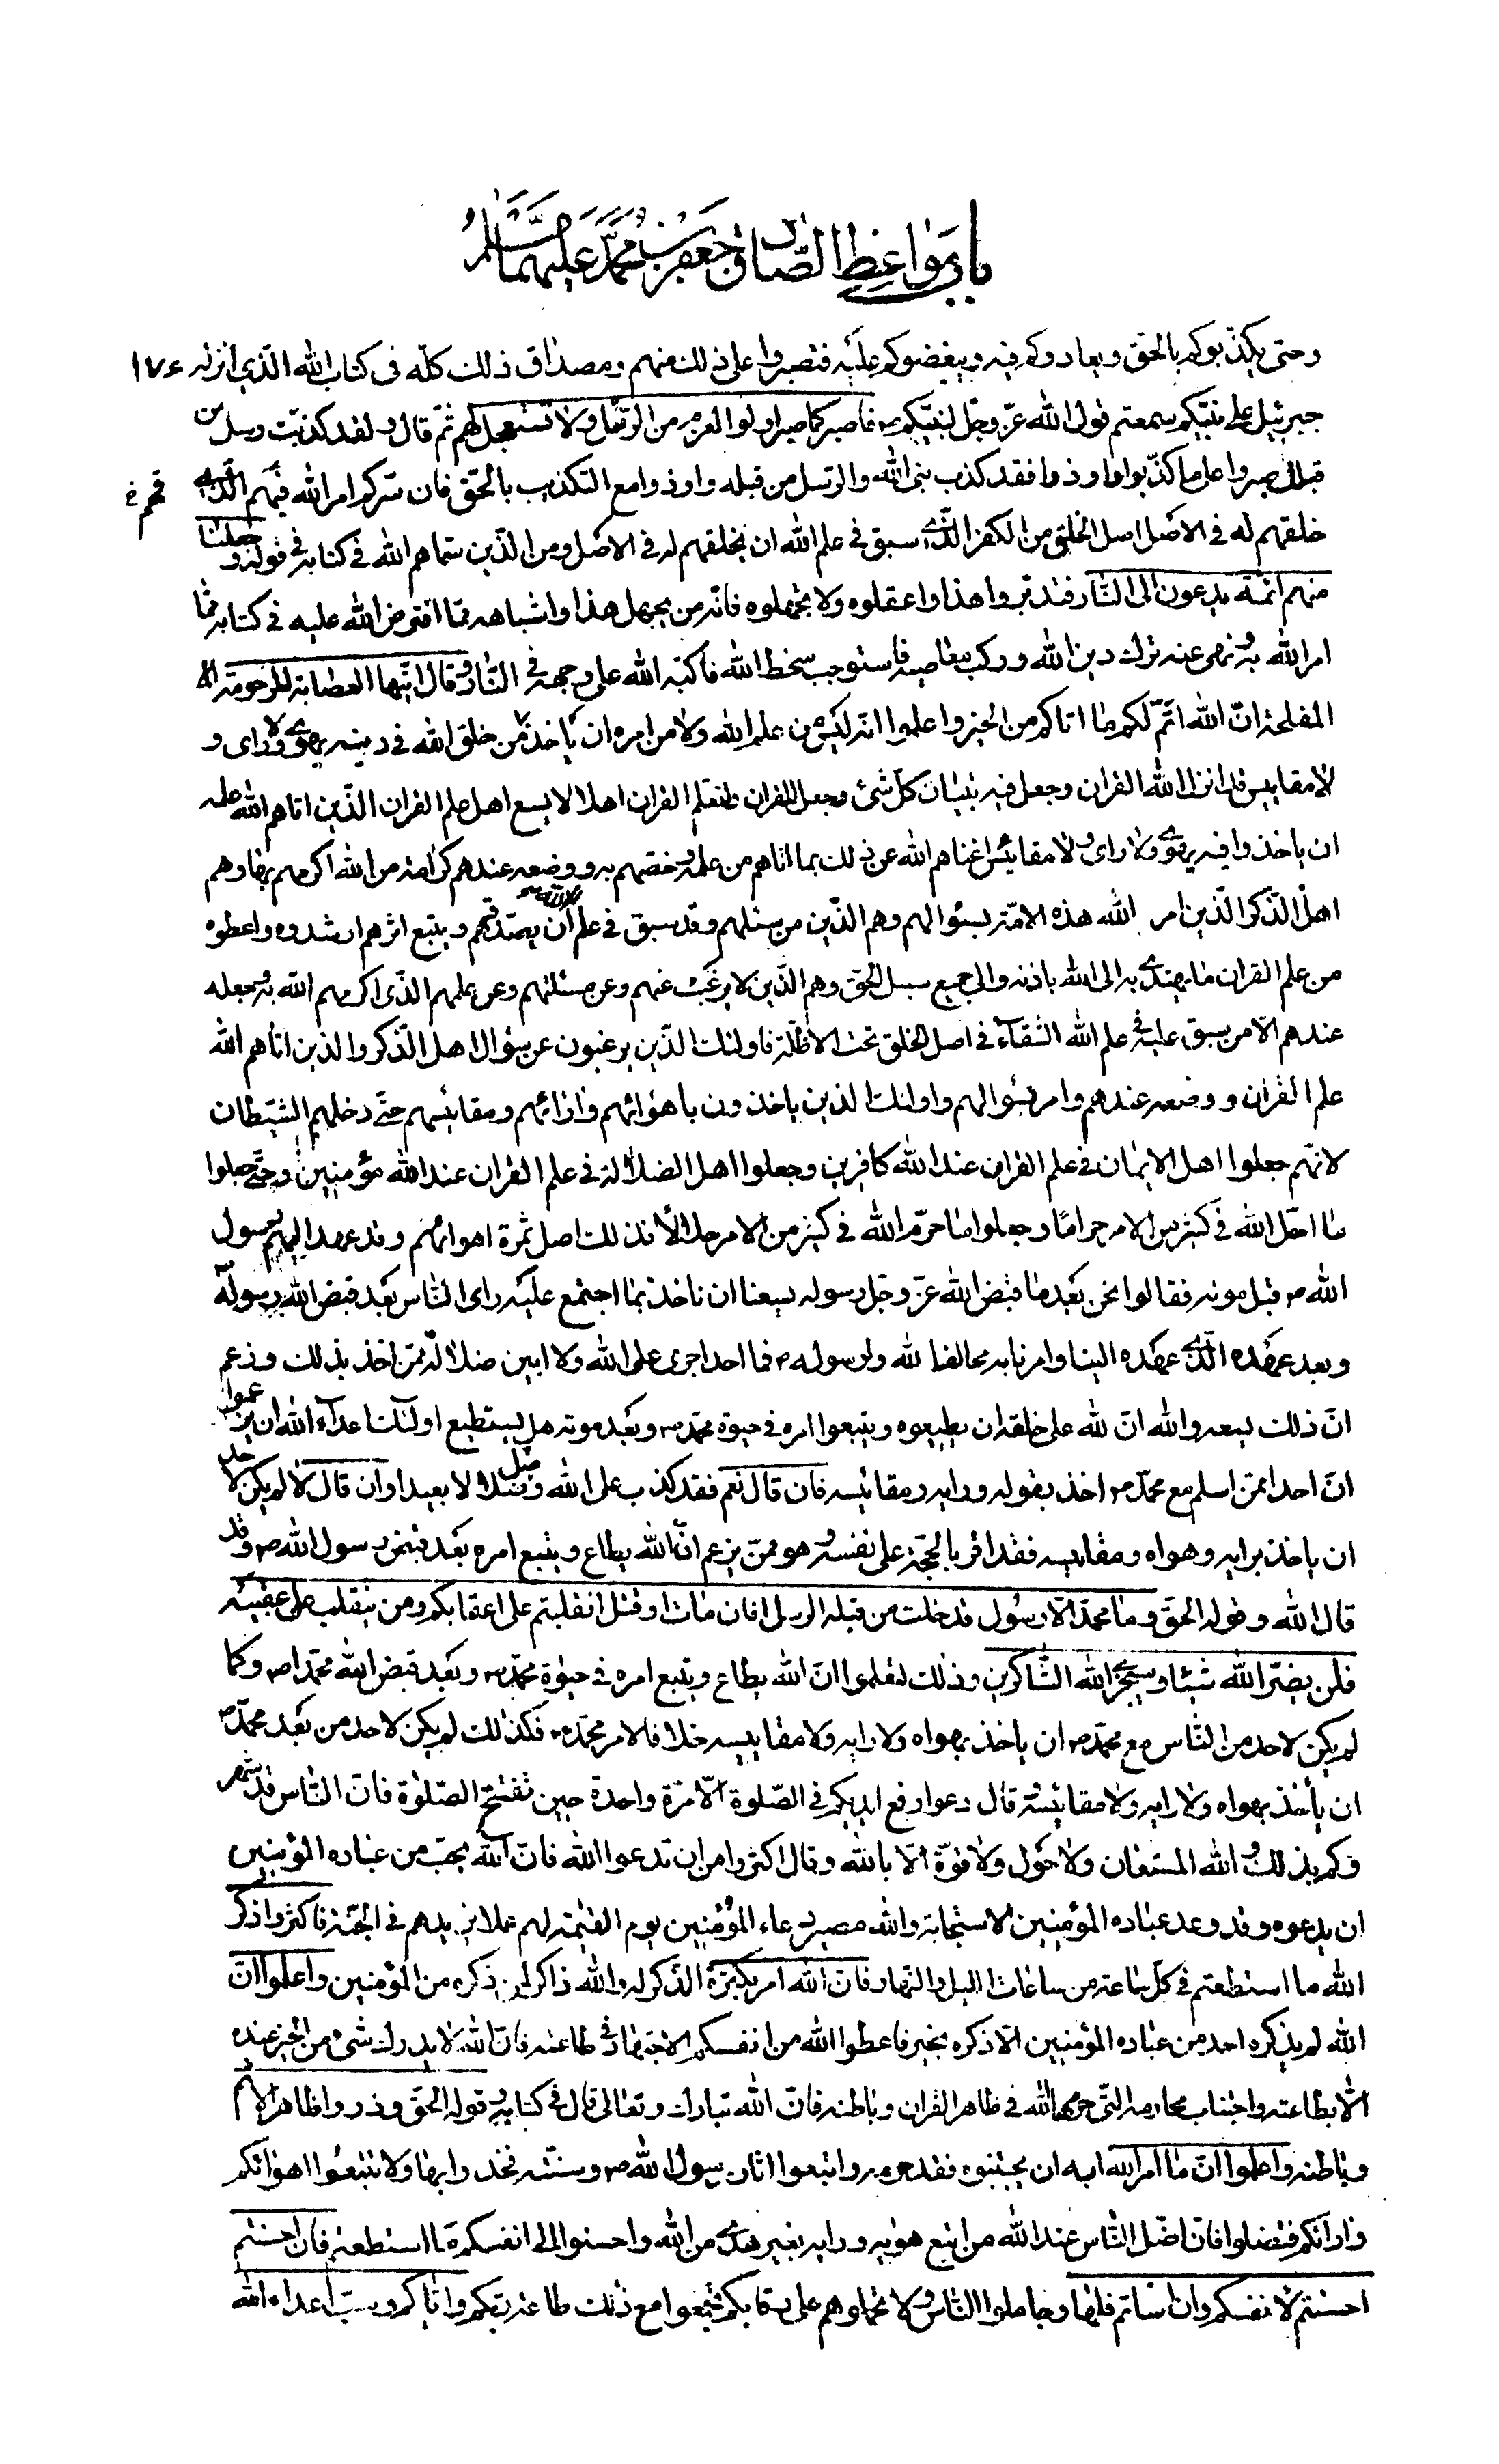 باب مواعظ الصادق جعفر بن محمد عليهما السلم
وحتى يكذّبوكم بالحق ويعادوكم فيه ويبغضوكم عليه فتصبروا على ذلك منهم ومصداق ذلك كلّه فى كتاب الله الّذي انزله ١٧٤
جبرئيل على نبيّكم سمعتم قول الله عزّ وجلّ لنبيّكم ص فاصبر كما صبر اولوا العزم من الرّسل ولا تستعجل لهم ثمّ قال ولقد كذبت رسل من
قبلك فصبروا على ما كذّبوا واوذوا فقد كذب نبى الله والرّسل من قبله واوذوا مع التكذيب بالحقّ فان سركم امر الله فيهم الّذي
خلقهم له فى الاصل اصل الخلق من الكفر الّذي سبق فى علم الله ان يخلقهم له فى الاصل ومن الّذين سمّاهم الله فى كتابه فى قوله وجعلنا
منهم ائمّة يدعون الى النّار فتدبّروا هذا واعقلوه ولا تجهلوه فانّه من يجهل هذا واشباهه ممّا افترض الله عليه فى كتابه ممّا
امر الله به ونهى عنه ترك دين الله وركب معاصيه فاستوجب سخط الله فاكبّه الله على وجهه فى النّار وقال ايّتها العصابة المرحومة
المفلحة انّ الله اتمّ لكم ما اتاكم من الخير واعلموا انّه ليس من علم الله ولا من امره ان يأخذ من خلق الله فى دينه بهوى ولا راى و
لا مقاييس قد انزل الله القران وجعل فيه تبيان كلّ شئ وجعل للقران ولتعلم القران اهلا لا يسع اهل علم القران الّذين اتاهم الله علمه
ان ياخذوا فيه بهوى ولا راى ولا مقائيس اغناهم الله عن ذلك بما اتاهم من علمه وخصّهم به ووضعه عندهم كرامة من الله اكرمهم بها وهم
اهل الذّكر الّذين امر الله هذه الامّة بسئوالهم وهم الّذين من سئلهم وقد سبق فى علم الله ان يصدّقهم ويتبع اثرهم ارشدوه واعطوه
من علم القران ما يهتدى به الى الله باذنه والى جميع سبل الحقّ وهم الّذين لا يرغب عنهم وعن مسئلتهم وعن علمهم الّذى اكرمهم الله به وجعله
عندهم الّا من سبق عليه فى علم الله الشّقاء فى اصل الخلق تحت الاظلّة فاولئك الّذين يرغبون عن سؤال اهل الذّكر والذين اتاهم الله
علم القران ووضعه عندهم وامر بسئوالهم واولئك الذين ياخذون باهوائهم وارائهم ومقائيسهم حتّى دخلهم الشّيطان
لانّهم جعلوا اهل الايمان فى علم القران عند الله كافرين وجعلوا اهل الضلالة فى علم القران عند الله مؤمنين وحتّى جعلوا
ما احلّ الله فى كثير من الامر حراما وجعلوا ما حرّم الله فى كثير من الامر حلالا فذلك اصل ثمرة اهوائهم وقد عهد اليهم رسول
الله ص قبل موته فقالوا نحن بعد ما قبض الله عزّ وجلّ رسوله يسعنا ان ناخذ بما اجتمع عليه راى النّاس بعد قبض الله رسوله
وبعد عهده الّذي عهده الينا وامرنا به مخالفا لله ولرسوله ص فما احد اجرى على الله ولا ابين ضلالة ممّن اخذ بذلك وزعم
انّ ذلك يسعه والله انّ لله على خلقه ان يطيعوه ويتبعوا امره فى حيوة محمّد ص وبعد موته هل يستطيع اولئك اعداء الله ان يزعموا
انّ احدا ممّن اسلم مع محمّد ص اخذ بقوله ورايه ومقائيسه فان قال نعم فقد كذب على الله وضلّ ضلالا بعيدا وان قال لا لم يكن لاحد
ان ياخذ برايه وهواه ومقاييسه فقد اقر بالحجّة على نفسه وهو ممّن يزعم انّ الله يطاع ويتبع امره بعد قبض رسول الله ص وقد
قال الله وقوله الحقّ وما محمّد الّا رسول قد خلت من قبله الرسل افان مات او قتل انقلبتم على اعقابكم ومن ينقلب على عقبيه
فلن يضرّ الله شيئا وسيجزى الله الشّاكرين وذلك لتعلموا انّ الله يطاع ويتبع امره فى حيوة محمّد ص وبعد قبض الله محمّدا ص وكما
لم يكن لاحد من النّاس مع محمّد ص ان ياخذ بهواه ولا رايه ولا مقاييسه خلافا لامر محمّد ص فكذلك لم يكن لاحد من بعد محمّد ص
ان يأخذ بهواه ولا رايه ولا مقائيسه وقال دعوا رفع ايديكم فى الصّلوة الّا مرّة واحدة حين تفتتح الصّلوة فانّ النّاس قد شهر
وكم بذلك والله المستعان ولا حول ولا قوّة الّا بالله وقال اكثروا من ان تدعوا الله فانّ الله يحبّ من عباده المؤمنين
ان يدعوه وقد وعد عباده المؤمنين الاستجابة والله مصير دعاء المؤمنين يوم القيمة لهم عملا يزيدهم فى الجنّة فاكثروا ذكر
الله ما استطعتم فى كلّ ساعة من ساعات الليل والنّهار فانّ الله امر بكثرة الذّكر له والله ذاكر لمن ذكره من المؤمنين واعلموا انّ
الله لم يذكره احد من عباده المؤمنين الّا ذكره بخير فاعطوا الله من انفسكم الاجتهاد فى طاعته فانّ الله لا يدرك شئ من الخير عنده
الّا بطاعته واجتناب محارمه الّتى حرّمها الله فى ظاهر القران وباطنه فانّ الله تبارك وتعالى قال فى كتابه وقوله الحقّ وذروا ظاهر الاثم
وباطنه واعلموا انّ ما امر الله به ان يجتنبوه فقد حرمه واتبعوا اثار رسول الله ص وسنّته فخذوا بها ولا تتبعوا اهوائكم
وارائكم فتضلوا فانّ اضلّ النّاس عند الله من اتبع هويه ورايه بغير هدى من الله واحسنوا الى انفسكم ما استطعتم فان احسنتم
احسنتم لانفسكم وان اسأتم فلها وجاملوا النّاس ولا تحملوهم على رقابكم تجمعوا مع ذلك طاعة ربّكم وايّاكم وسبّ اعداء الله